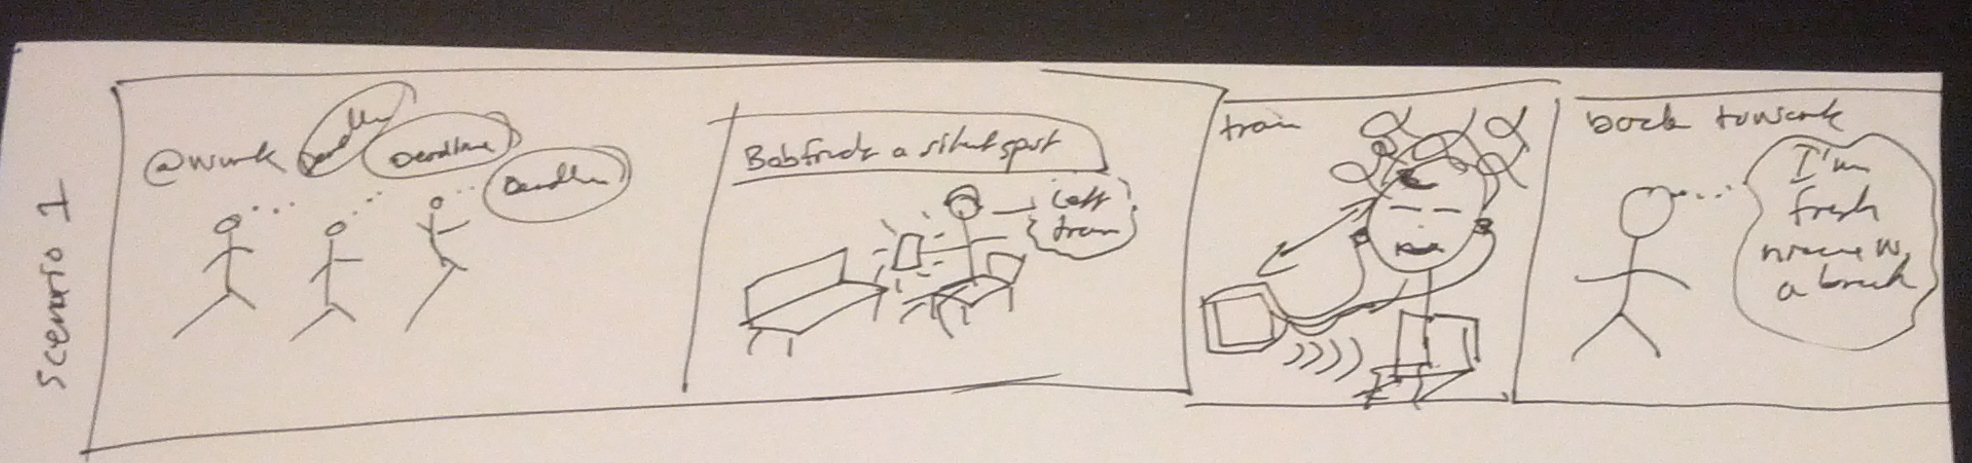 Scenario 1
@work
Deadline
Deadline
Deadline
Bob finds a silent spot
Let's
train
train
back to work
I'm
fresh
a break